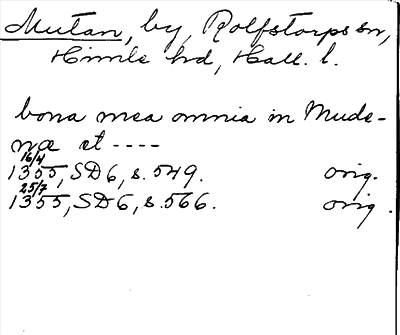 Mutan, by, Rolfstorps sn,
Himle hd, Hall. l.
bona mea omnia in Mude-
næ et ----
16/4
1355, SD6, s. 549. orig.
25/7
1355, SD6, s. 566. orig.